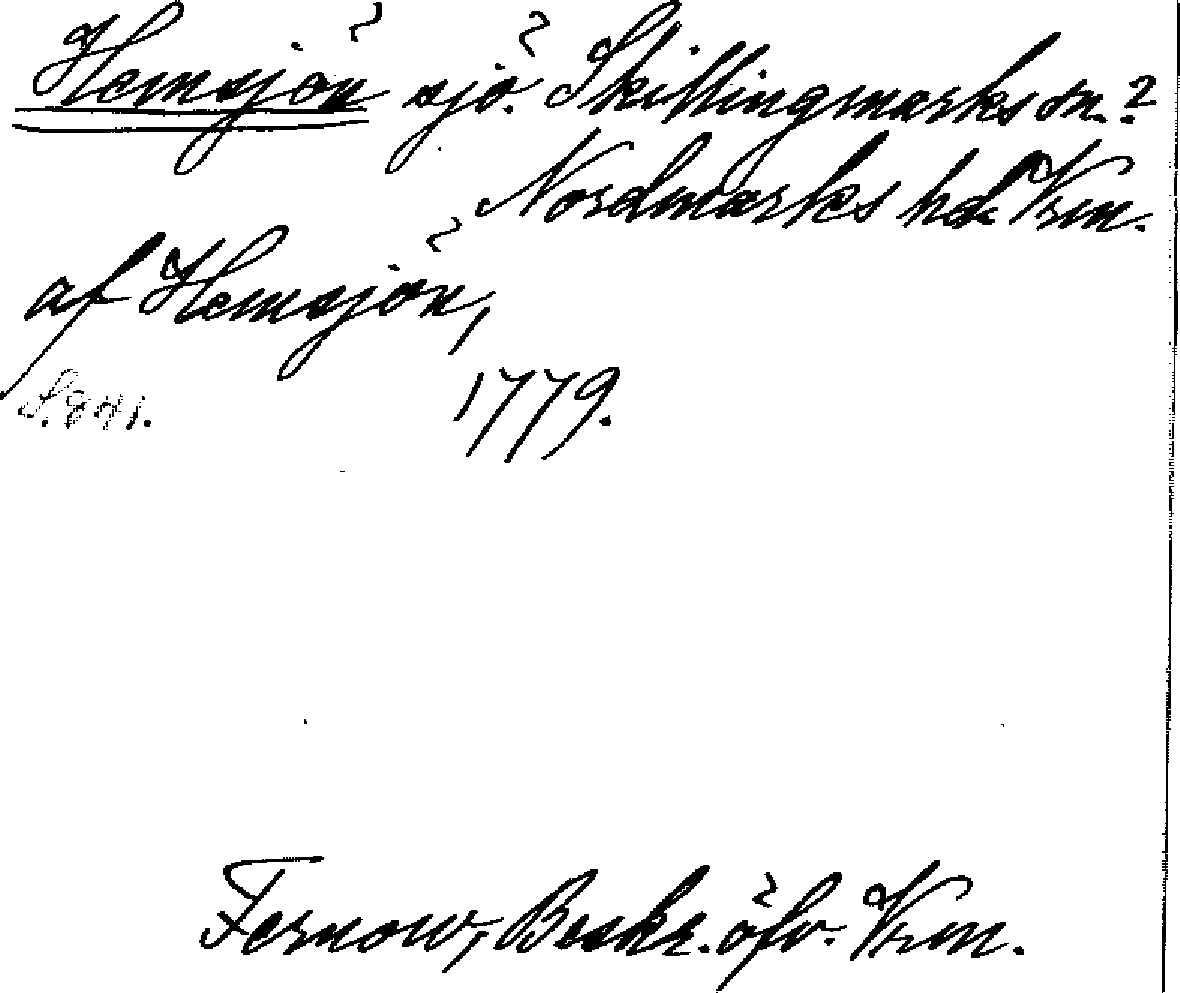 Hemsjön sjö. Skillingmarks sn.?
Nordmarks hd Vrm.
af Hemsjön,
S. 841.
1779.
Fernow, Beskr. öfv. Vrm.